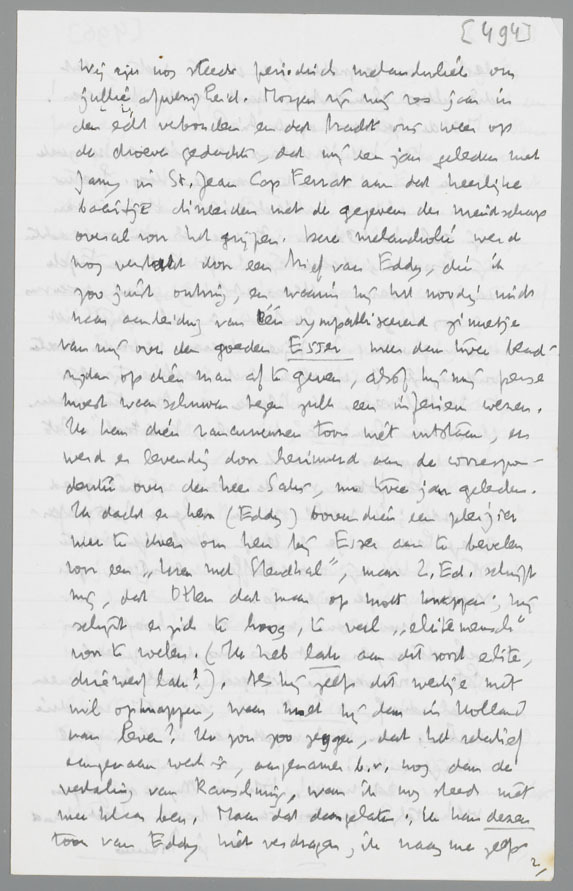 [494]
Wij zijn nog steeds periodiek melancholiek om
jullie afwezigheid. Morgen zijn wij zes jaar in
den echt verbonden en dat bracht ons weer op
de droeve gedachte, dat wij een jaar geleden met
Jany in St. Jean Cap Ferrat aan dat heerlijke
baaitje dineerden met de gegevens der vriendschap
overal voor het grijpen. Deze melancholie werd
nog versterkt door een brief van Eddy, dien ik
zoo juist ontving, en waarin hij het noodig vindt
naar aanleiding van één sympathiseerend zinnetje
van mij over den goeden Esser meer dan twee blad-
zijden op dien man af te geven, alsof hij mij perse
moest waarschuwen tegen zulk een inferieur wezen.
Ik kan dien rancuneuzen toon niet uitstaan, en
werd er levendig door herinnerd aan de correspon-
dentie over den heer Saks, nu twee jaar geleden.
Ik dacht er hem (Eddy) bovendien een plezier
mee te doen om hem bij Esser aan te bevelen
voor een "leven met Stendhal", maar Z.Ed. schrijft
mij, dat Otten dat maar op moet knappen; hij
schijnt er zich te hoog, te veel "elitemensch"
voor te voelen. (Ik heb lak aan dit soort elite,
driewerf lak!). Als hij zelfs dit werkje niet
wil opknappen, waar moet hij dan in Holland
van leven? Ik zou zoo zeggen, dat het relatief
aangenaam werk is, aangenamer b.v. nog dan de
vertaling van Rauschning, waar ik nog steeds niet
mee klaar ben. Maar dat daargelaten, ik kan dezen
toon van Eddy niet verdragen, ik raag me zelfs
2,